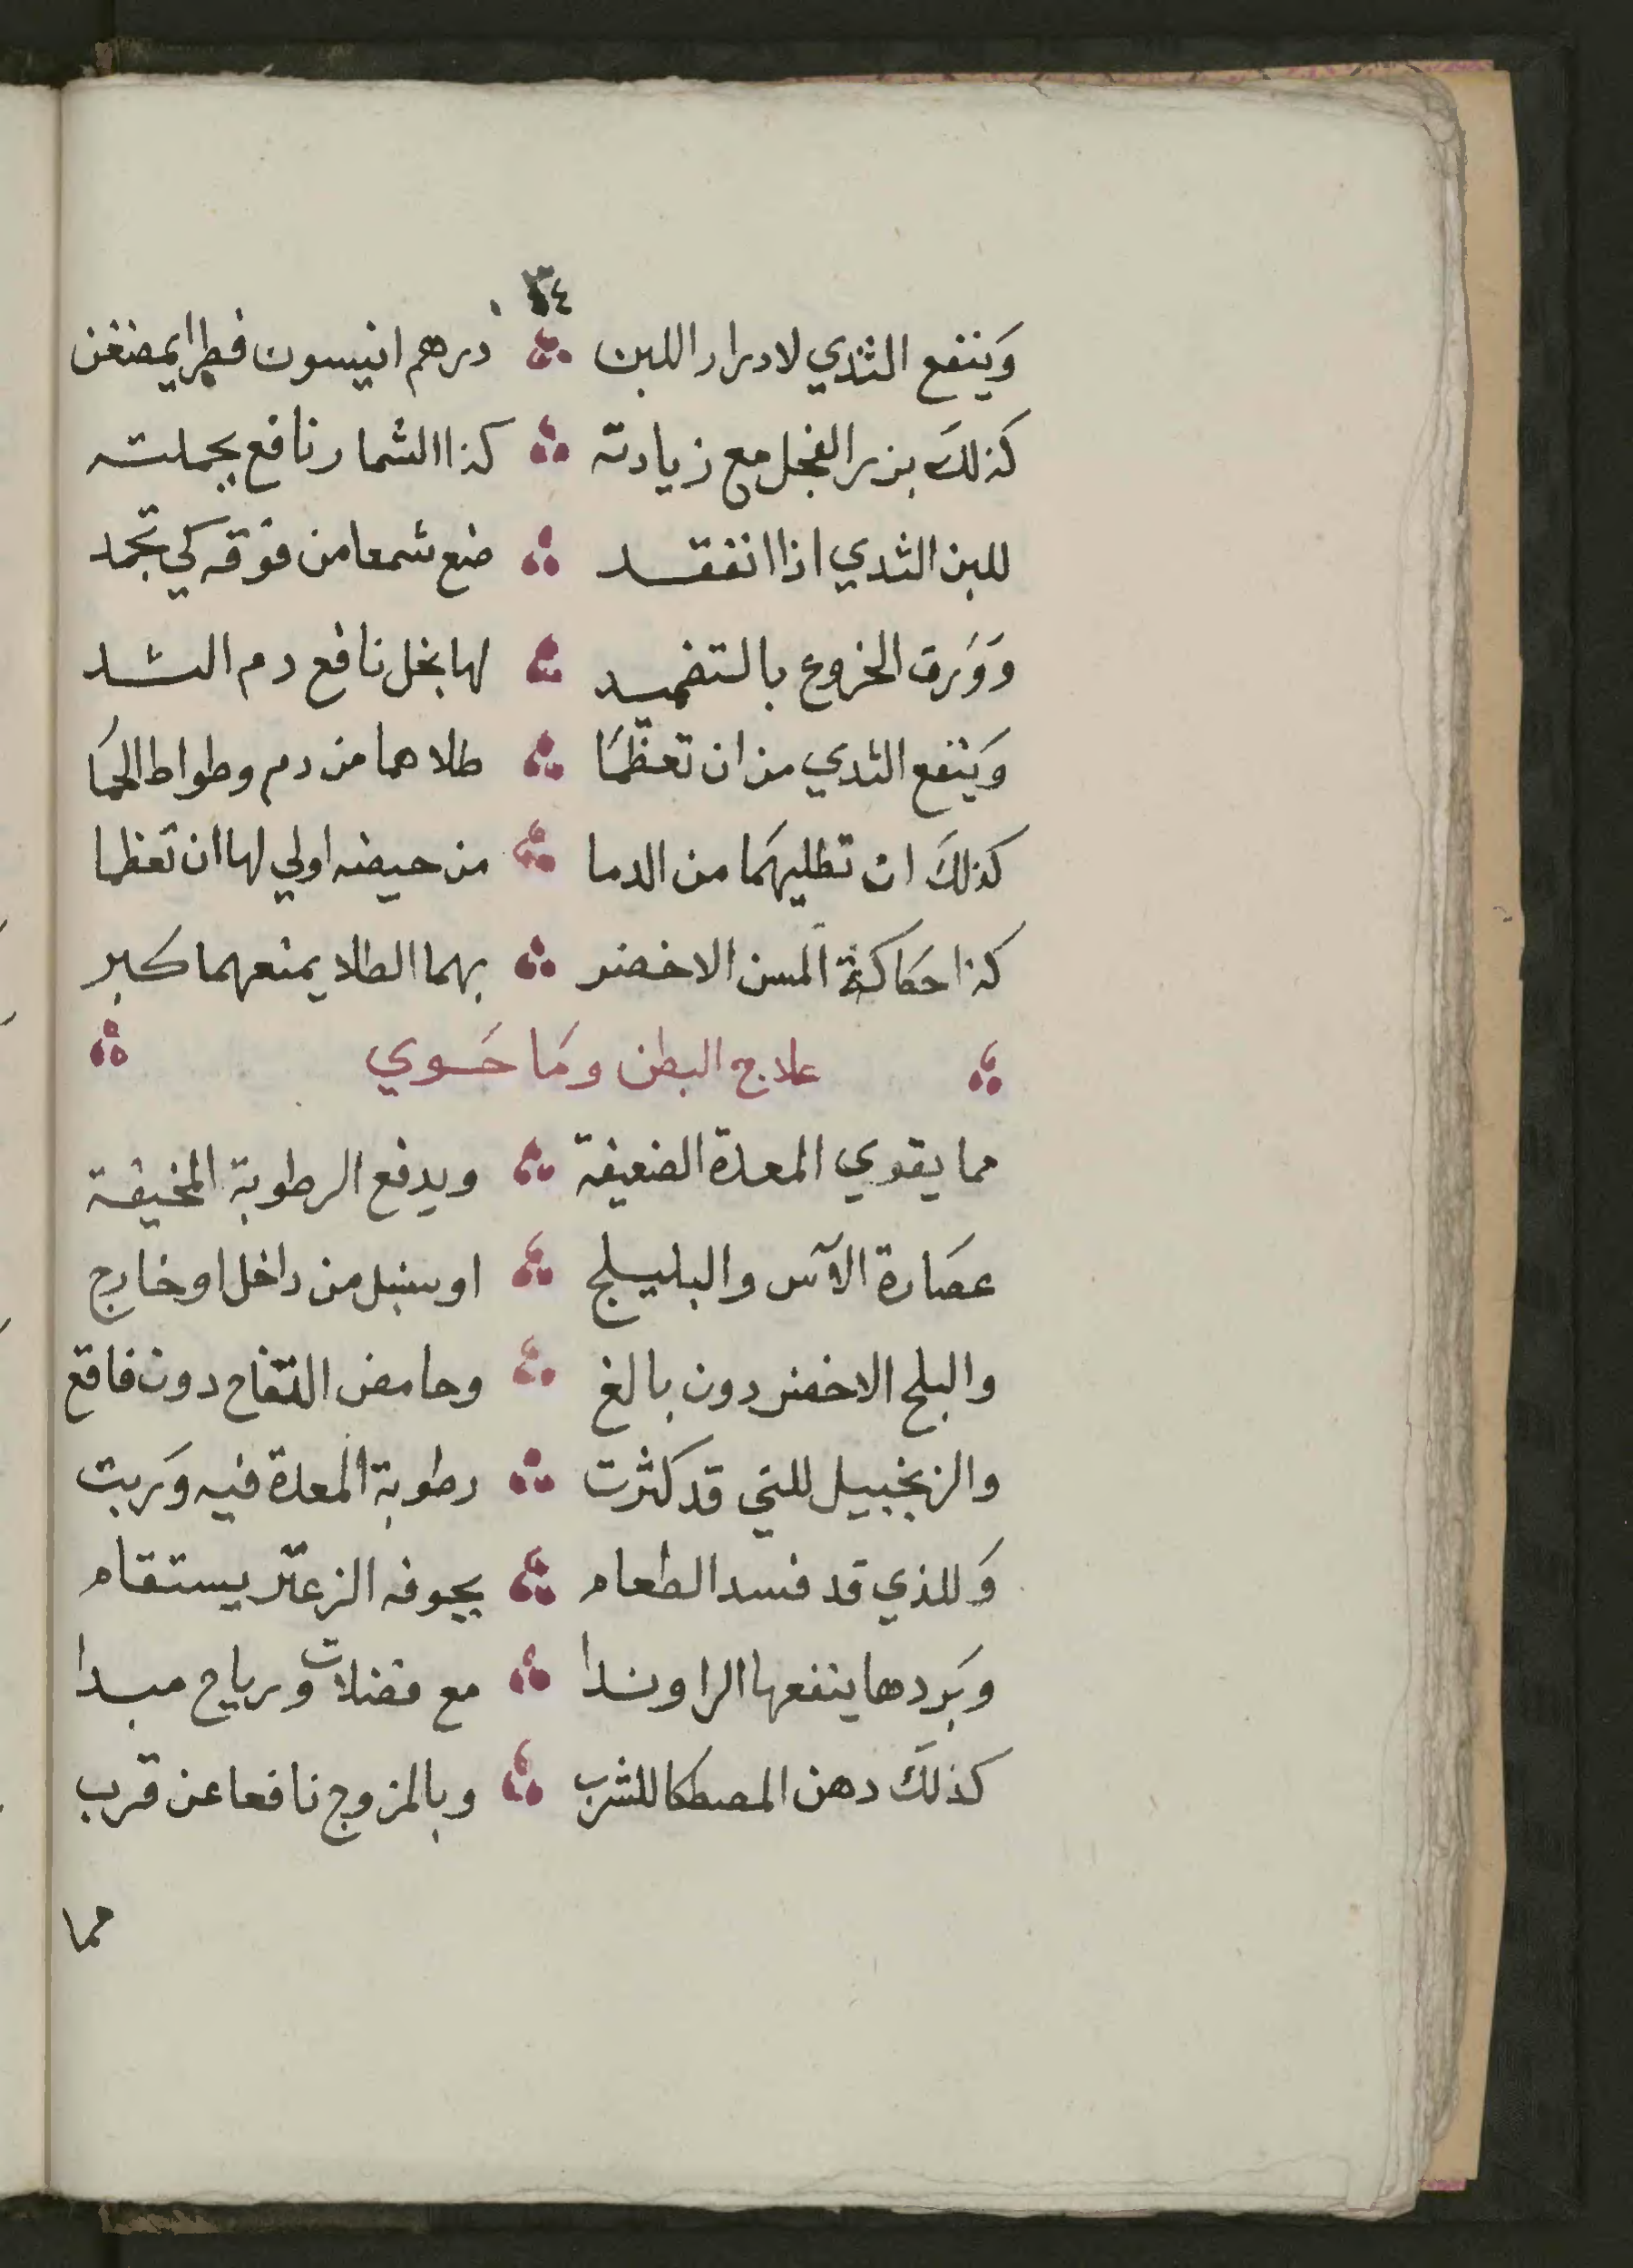 ٣٤
وَينفع الثدي لادرار اللبن درهم انيسون فطرا يمضغن
كذلكَ بزر الفجل مع زيادته كذا الشمار نافع بجملته
للبن الثدي اذا انفقد ضع شمعا من فوقه كي تجمد
ووَرق الخروع بالتضميد لها بخل نافع دم الشد
وَينفع الثدي من ان تعظّمَا طلاهما من دم وطواط الحمَا
كذلكَ ان تطليهمَا من الدما من حيضه اولي لها ان تعظما
كذا حكاكة المسن الاخضر بهما الطلا يمنعهما كبر
علاج البطن ومَا حَوي
مما يقوي المعدة الضعيفة ويدفع الرطوبة المخيفة
عصَارة الآس والبليلج او سنبل من داخل او خارج
والبلح الاخضر دون بالغ وحامض التفاح دون فاقع
والزنجبيل للتي قد كثرت رطوبة المعدة فيه وَربت
وَللذي قد فسد الطعام بجوفه الزعتر يستقام
وبَردها ينفعها الراوندا مع فضلات ورياح مبدا
كذلكَ دهن المصطكا للشرب وبالمزوج نافعا عن قرب
مما